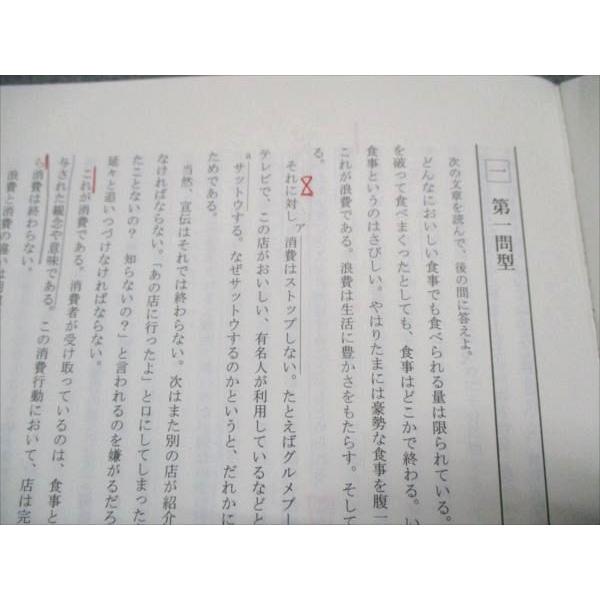 一 第一問型
次の文章を読んで、後の問に答えよ。
どんなにおいしい食事でも食べられる量は限られている。
を破って食べまくったとしても、食事はどこかで終わる。い
食事というのはさびしい。やはりたまには豪勢な食事を腹一
これが浪費である。浪費は生活に豊かさをもたらす。そして
る。
それに対し、ア消費はストップしない。たとえばグルメブー
テレビで、この店がおいしい、有名人が利用しているなどと
aサットウする。なぜサットウするのかというと、だれかに
ためである。
当然、宣伝はそれでは終わらない。次はまた別の店が紹介
なければならない。「あの店に行ったよ」と口にしてしまった
たことないの？ 知らないの？」と言われるのを嫌がるだろ
延々と追いつづけなければならない。
これが消費である。消費者が受け取っているのは、食事と
与された観念や意味である。この消費行動において、店は完
消費は終わらない。
浪費と消費の違いは明